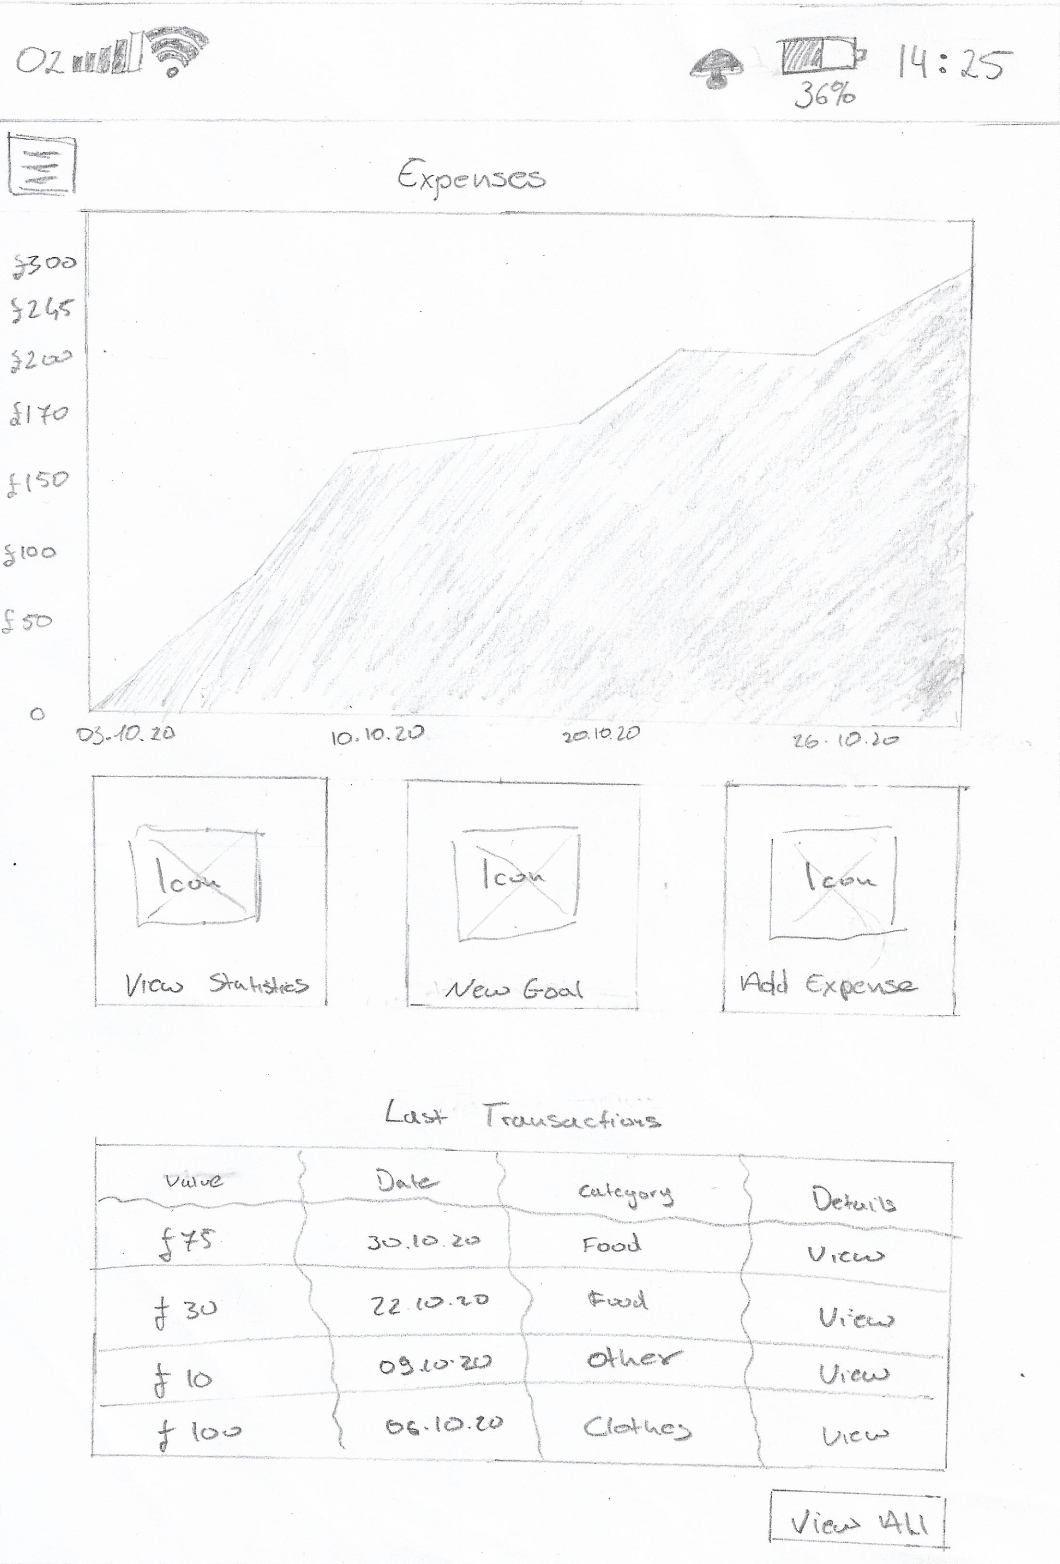 O2 14:25
36%
Expenses
£300
£245
£200
£170
£150
£100
£50
0
03.10.20 10.10.20 20.10.20 26.10.20
Icon Icon Icon
View Statistics New Goal Add Expense
Last Transactions
Value Date Category Details
£75 30.10.20 Food View
£30 22.10.20 Food View
£10 09.10.20 Other View
£100 06.10.20 Clothes View
View All